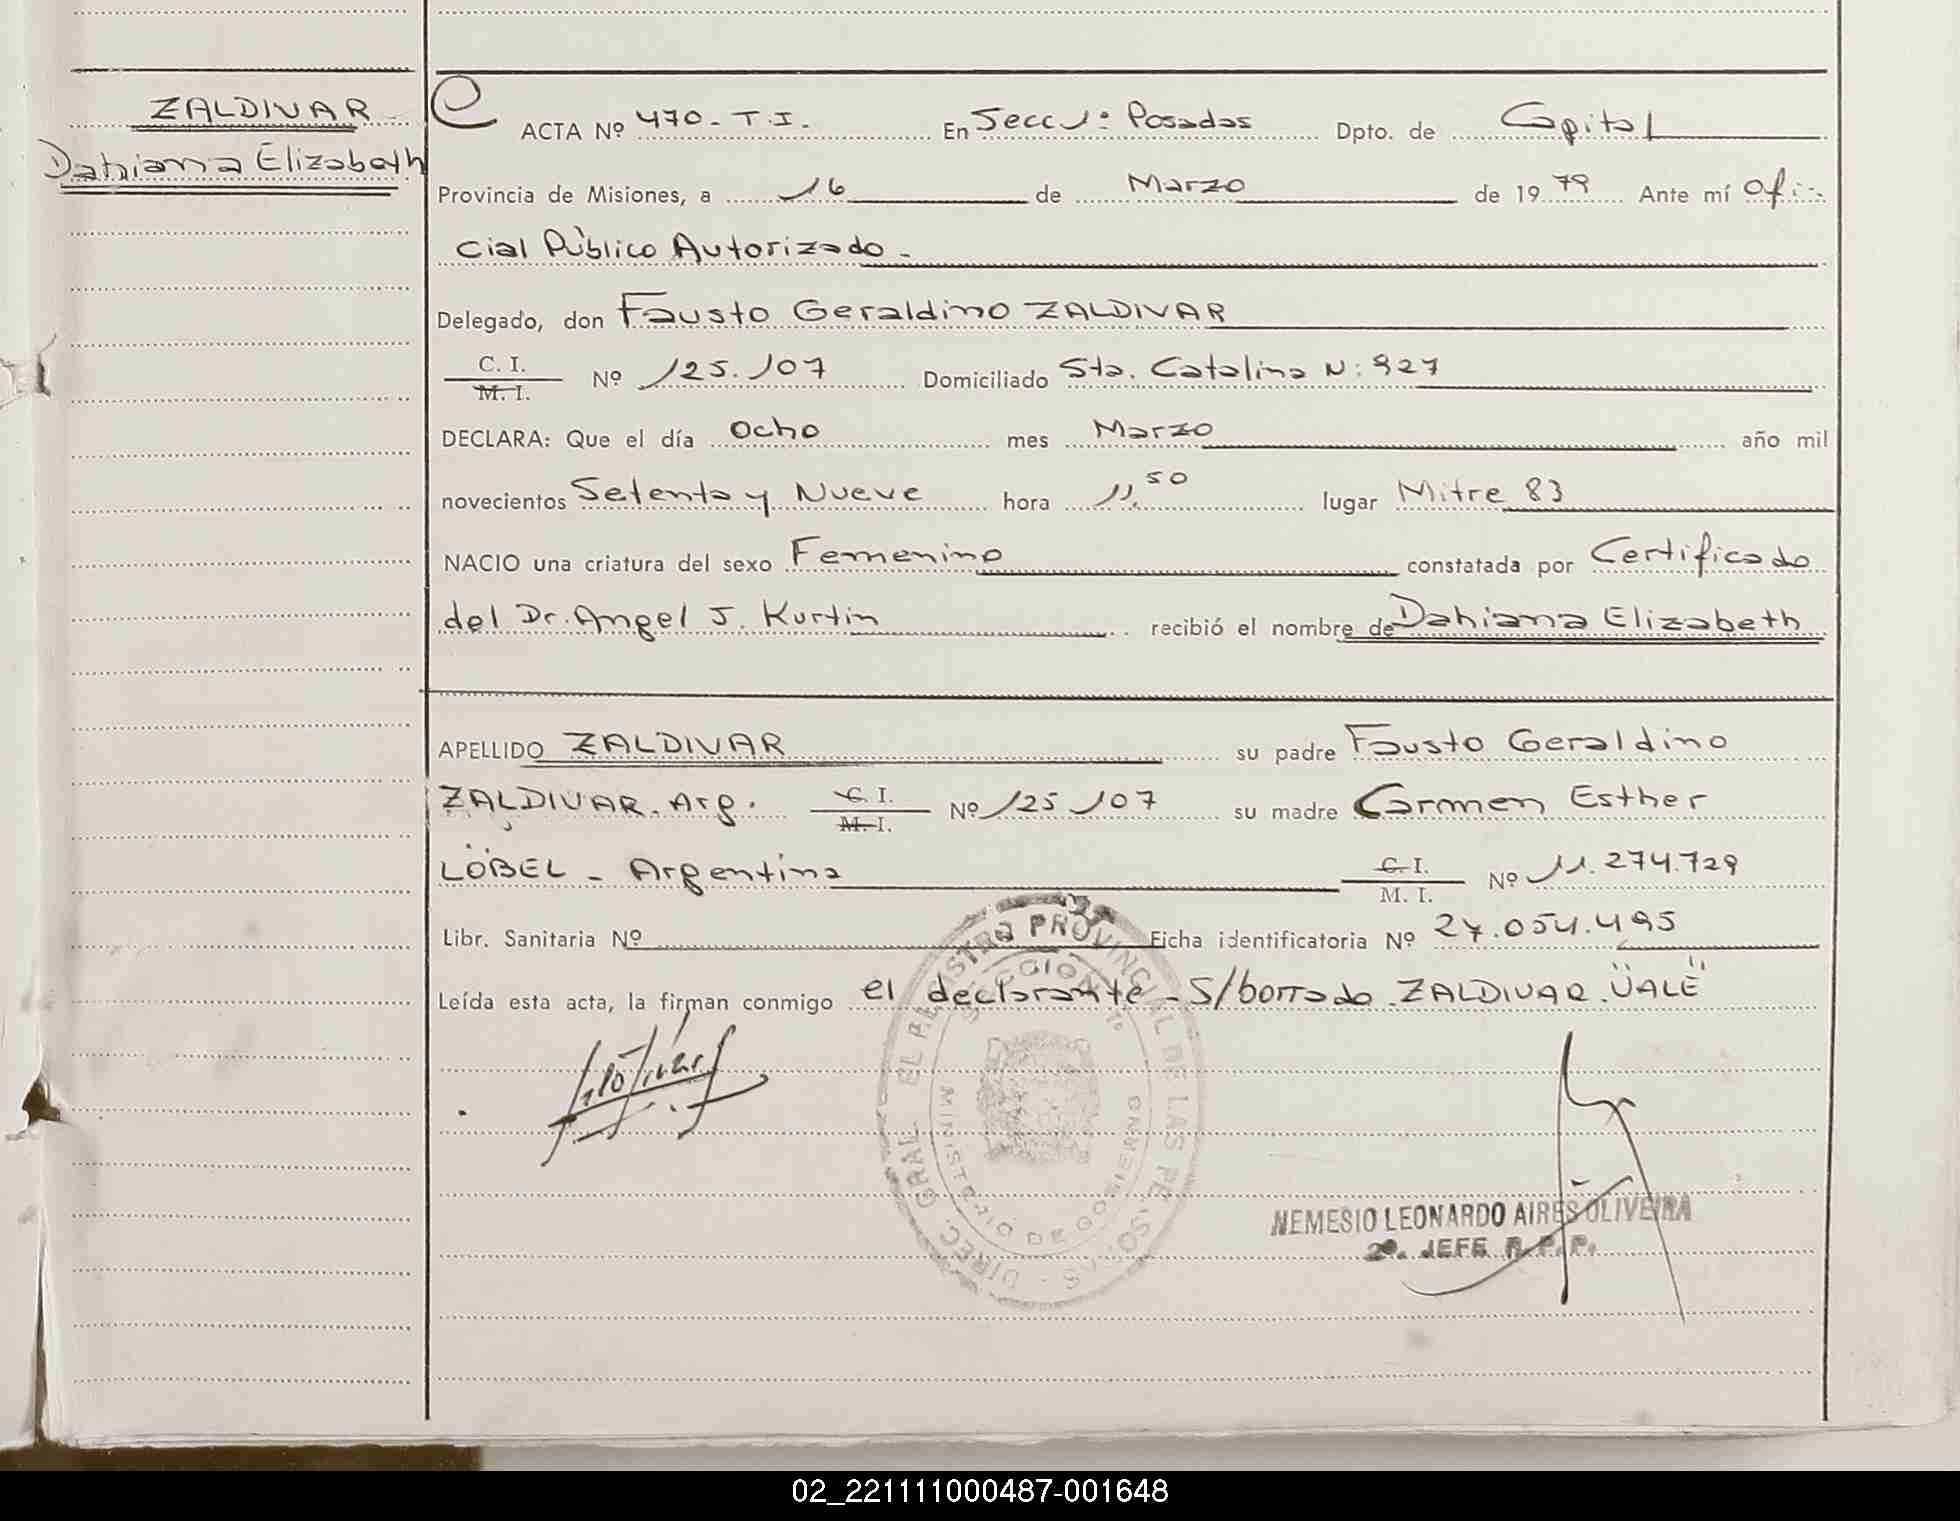 ZALDIVAR
Dahiana Elizabeth
ACTA Nº 470 - T.I. En Secc 1º Posadas Dpto. de Capital
Provincia de Misiones, a 16 de Marzo de 1979 Ante mí Ofi-
cial Público Autorizado -
Delegado, don Fausto Geraldino ZALDIVAR
C. I.
M. I. Nº 125.107 Domiciliado Sta. Catalina N: 927
DECLARA: Que el día Ocho mes Marzo año mil
novecientos Setenta y Nueve hora 11,50 lugar Mitre 83
NACIO una criatura del sexo Femenino constatada por Certificado
del Dr. Angel J. Kurtin recibió el nombre de Dahiana Elizabeth
APELLIDO ZALDIVAR su padre Fausto Geraldino
ZALDIVAR. Arg. C. I. M. I. Nº 125.107 su madre Carmen Esther
LÖBEL - Argentina C. I. M. I. Nº 11.274.729
Libr. Sanitaria Nº Ficha identificatoria Nº 27.054.495
Leída esta acta, la firman conmigo el declarante - S/borrado. ZALDIVAR. "VALE"
DIREC. GRAL. EL REGISTRO PROVINCIAL DE LAS PERSONAS
SECCION 1º
MINISTERIO DE GOBIERNO
NEMESIO LEONARDO AIRES OLIVEIRA
2º. JEFE R. P. P.
02_221111000487-001648